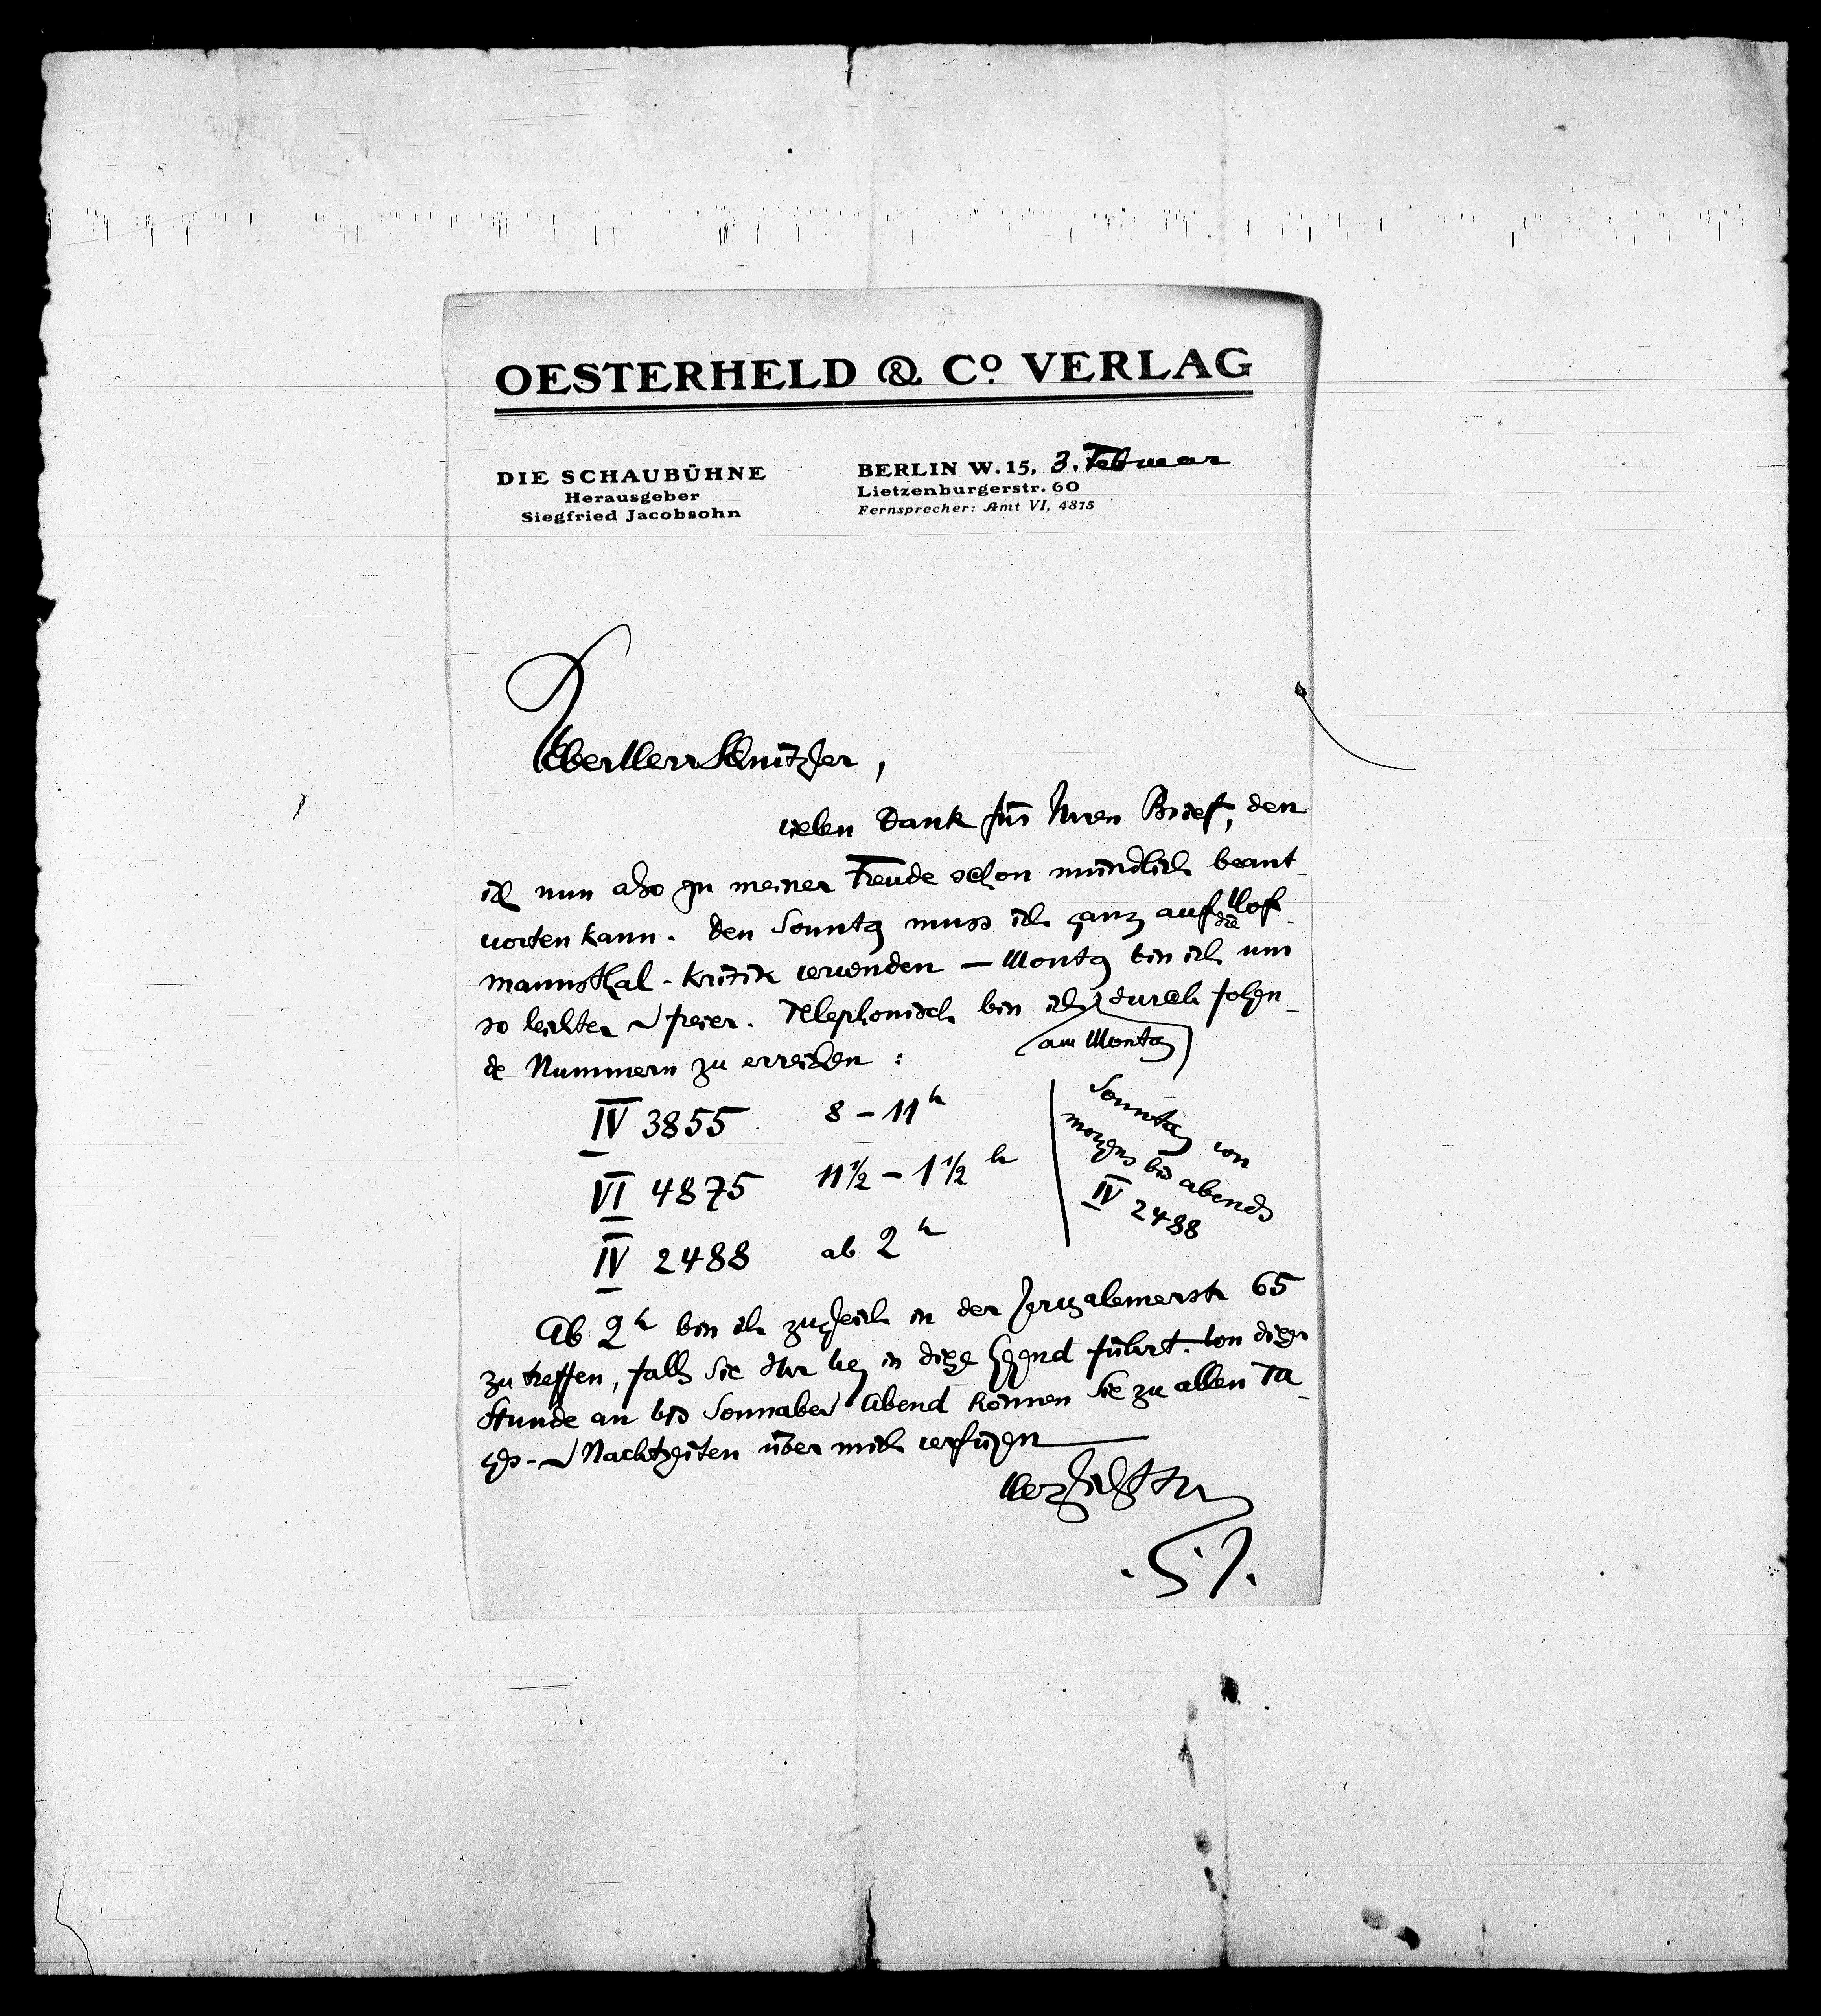 OESTERHELD & Cº VERLAG
DIE SCHAUBÜHNE
Herausgeber
Siegfried Jacobsohn
BERLIN W. 15, 3. Februar
Lietzenburgerstr. 60
Fernsprecher: Amt VI, 4875
Lieber Herr Schnitzler,
vielen Dank für Ihren Brief, den
ich nun also zu meiner Freude schon mündlich beant-
worten kann. Den Sonntag muss ich ganz auf die Hof-
mannsthal-Kritik verwenden — Montag bin ich um
so leichter u freier. Telephonisch bin ich durch folgen-
am Montag
de Nummern zu erreichen:
IV 3855 8 – 11 h
VI 4875 11½ – 1½ h
IV 2488 ab 2 h
Sonntag von
morgens bis abends
IV 2488
Ab 2 h bin ich zugleich in der Jerusalemerstr 65
zu treffen, falls Sie Ihr Weg in diese Gegend führt. Von dieser
Stunde an bis Sonnabend Abend können Sie zu allen Ta-
ges- u Nachtzeiten über mich verfügen
Herzlichst Ihr
S. J.